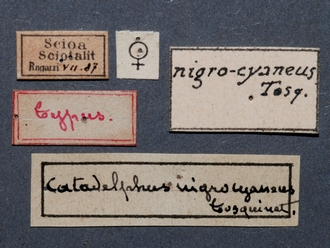 Scioa
Sciotalit
Ragazzi VII. 87
♀
nigro-cyaneus
Tosq.
Typus.
Catadelphus nigrocyaneus
Tosquinet.